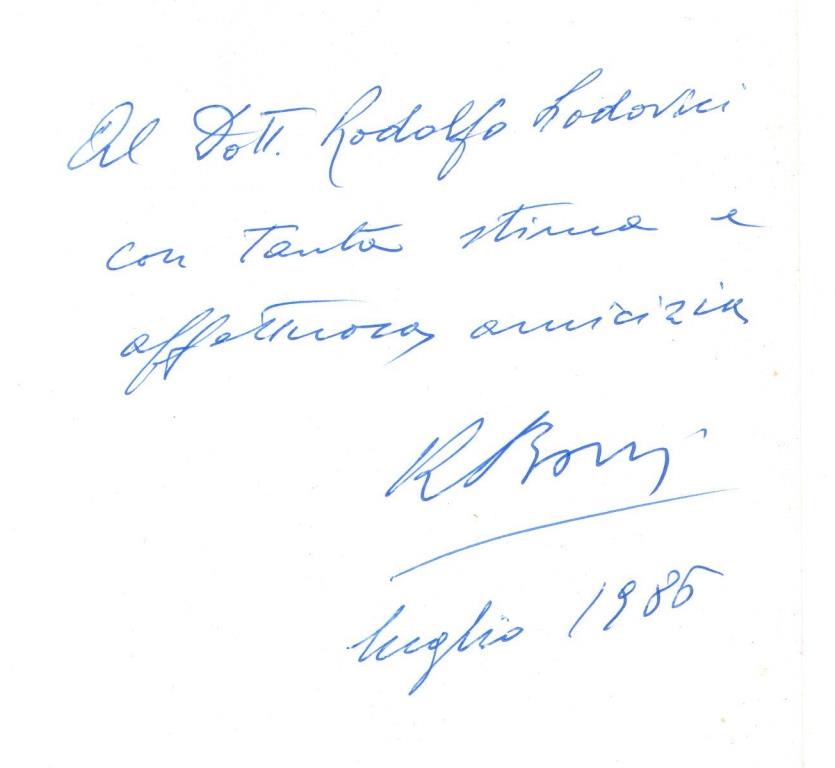 Al Dott. Rodolfo Lodovici
con tanta stima e
affettuosa amicizia
luglio 1985